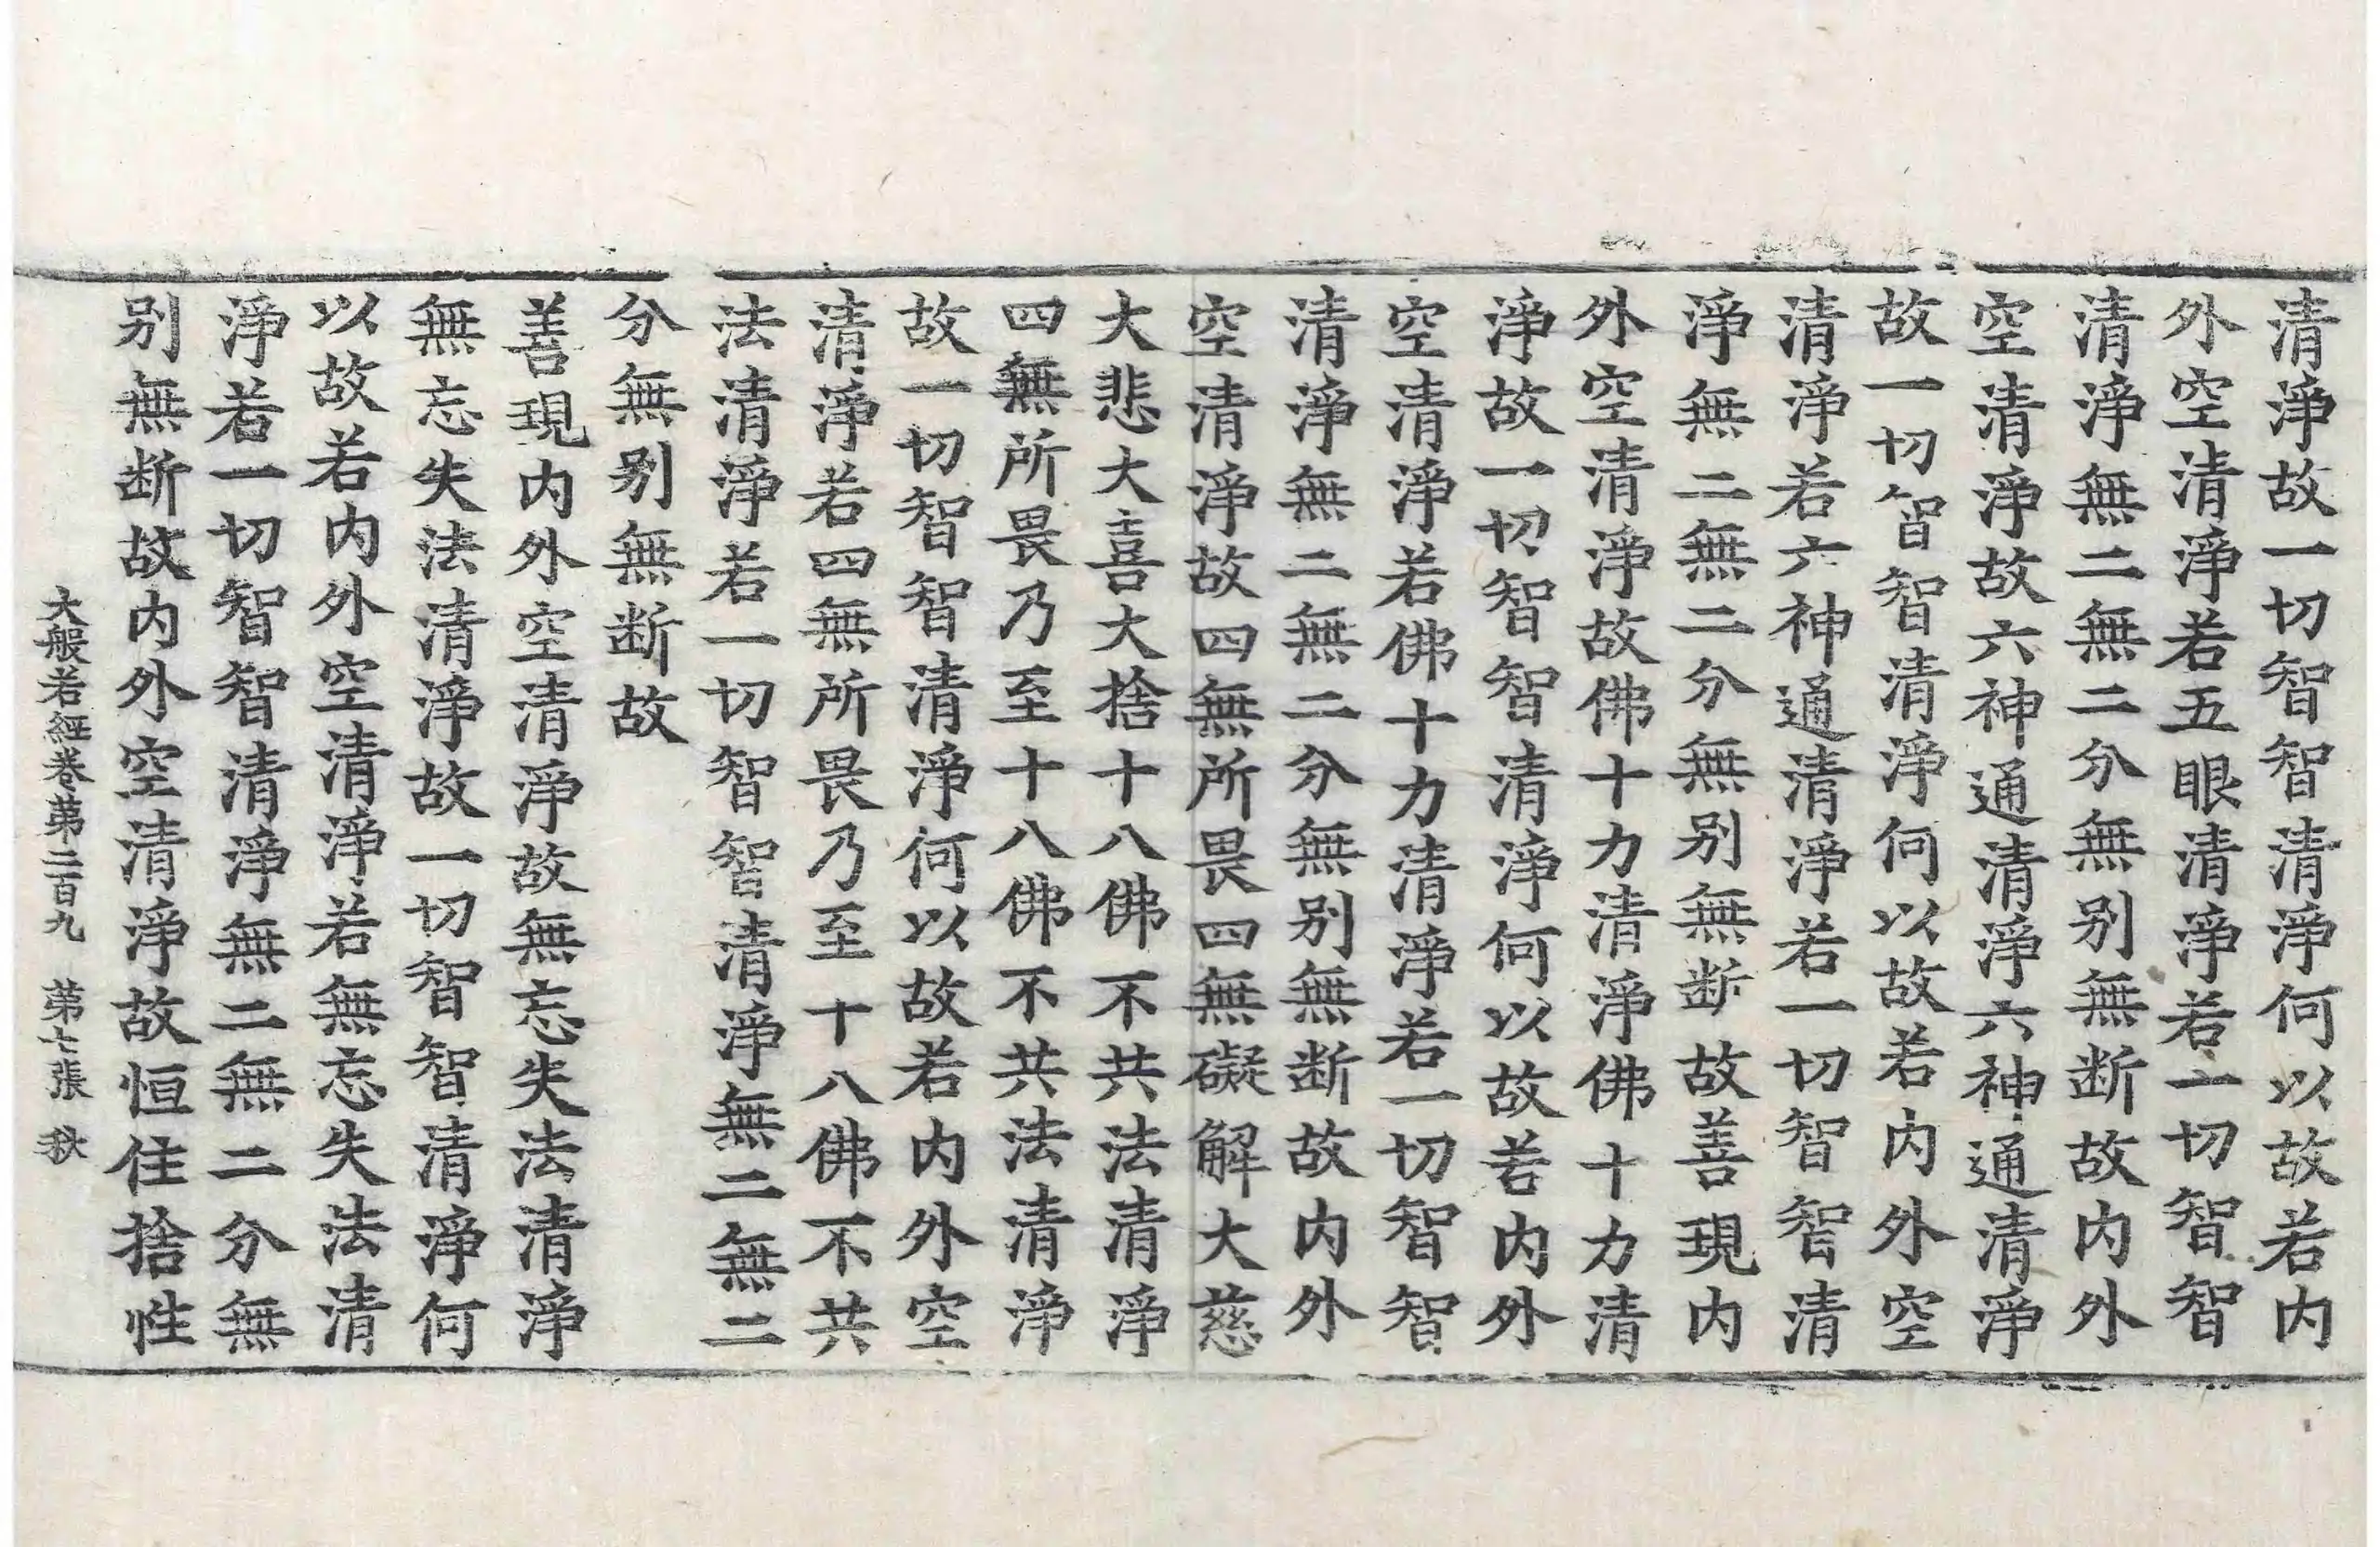 清淨故一切智智清淨何以故若内
外空清淨若五眼清淨若一切智智
清淨無二無二分無别無断故内外
空清淨故六神通清淨六神通清淨
故一切智智清淨何以故若内外空
清淨若六神通清淨若一切智智清
淨無二無二分無别無断故善現内
外空清淨故佛十力清淨佛十力清
淨故一切智智清淨何以故若内外
空清淨若佛十力清淨若一切智智
清淨無二無二分無别無断故内外
空清淨故四無所畏四無礙解大慈
大悲大喜大捨十八佛不共法清淨
四無所畏乃至十八佛不共法清淨
故一切智智清淨何以故若内外空
清淨若四無所畏乃至十八佛不共
法清淨若一切智智清淨無二無二
分無别無断故
善現内外空清淨故無忘失法清淨
無忘失法清淨故一切智智清淨何
以故若内外空清淨若無忘失法清
淨若一切智智清淨無二無二分無
别無断故内外空清淨故恒住捨性
大般若經卷第二百九 第七張 秋